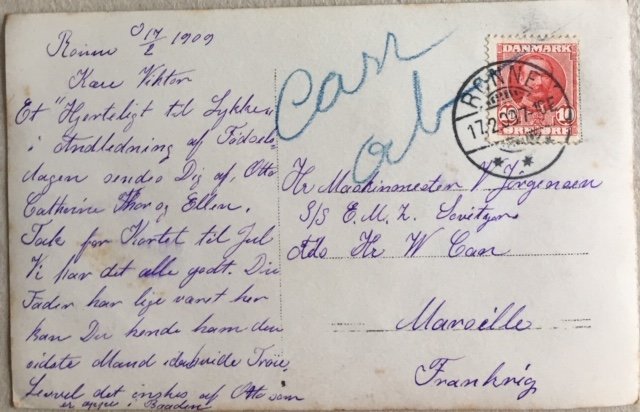 Rønne d 17/2 1909
Kære Viktor
Et "Hjerteligt til Lykke"
i Andledning af Fødsels-
dagen sendes Dig af, Otto
Cathrine Thor og Ellen.
Tak for Kortet til Jul
Vi har det alle godt. Din
Fader har lige været her
kan Du kende ham den
sidste Mand i hvide Trøie.
Levvel det ønskes af Otto som
er oppe i Baaden
Carr
DANMARK
10
RØNNE
17.2.09.
Hr Maskinmester V Jørgensen
S/S E.M.Z.
Ads Hr W Carr
Marseille
Frankrig